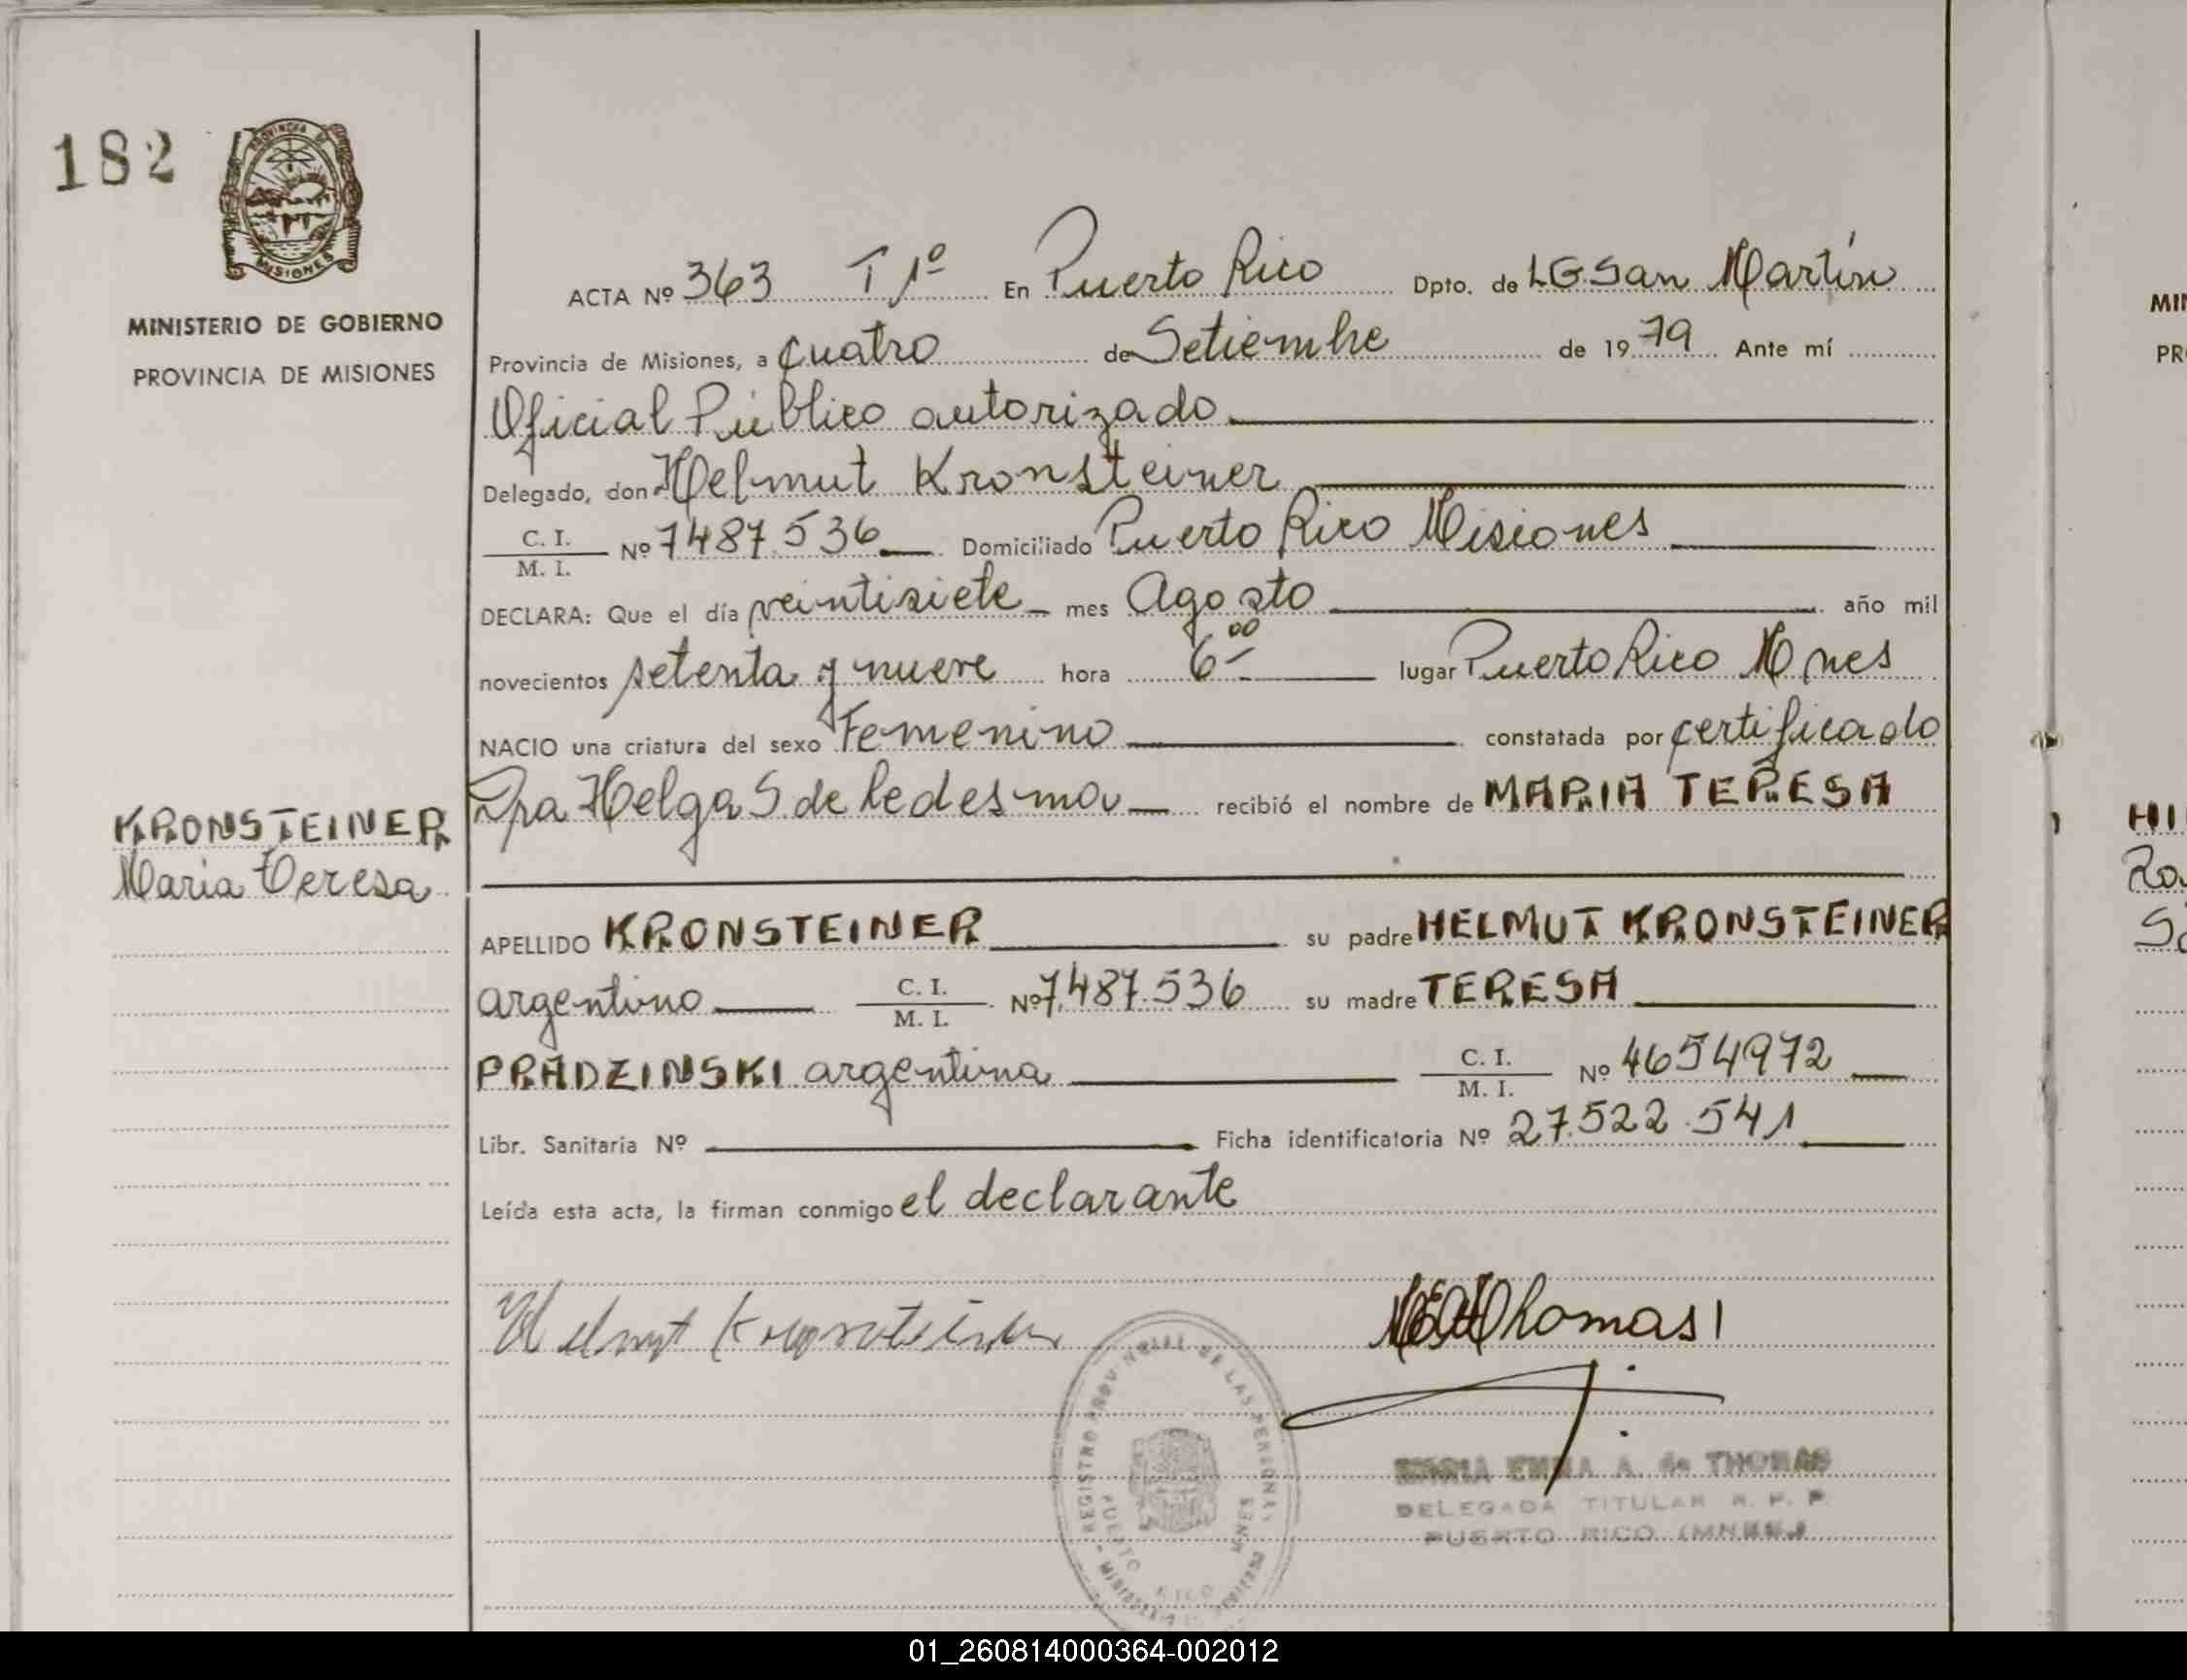 182
PROVINCIA DE
MISIONES
MINISTERIO DE GOBIERNO
PROVINCIA DE MISIONES
KRONSTEINER
Maria Teresa
ACTA Nº 363 T 1º En Puerto Rico Dpto. de LG San Martín
Provincia de Misiones, a cuatro de Setiembre de 1979 Ante mí
Oficial Público autorizado
Delegado, don Helmut Kronsteiner
C. I.
M. I. Nº 7487.536 Domiciliado Puerto Rico Misiones
DECLARA: Que el día veintisiete mes Agosto año mil
novecientos setenta y nueve hora 6 00 lugar Puerto Rico Mnes
NACIO una criatura del sexo Femenino constatada por certificado
Dra Helga S. de Ledesma recibió el nombre de MARIA TERESA
APELLIDO KRONSTEINER su padre HELMUT KRONSTEINER
argentino C. I.
M. I. Nº 7.487.536 su madre TERESA
PRADZINSKI argentina C. I.
M. I. Nº 4654972
Libr. Sanitaria Nº Ficha identificatoria Nº 27.522.541
Leída esta acta, la firman conmigo el declarante
Helmut Kronsteiner
Thomas
REGISTRO PROVINCIAL DE LAS PERSONAS
PUERTO RICO MNES
MARIA EMMA A. de THOMAS
DELEGADA TITULAR R. P. P.
PUERTO RICO (MNES.)
MIN
PR
HI
Ro
01_260814000364-002012